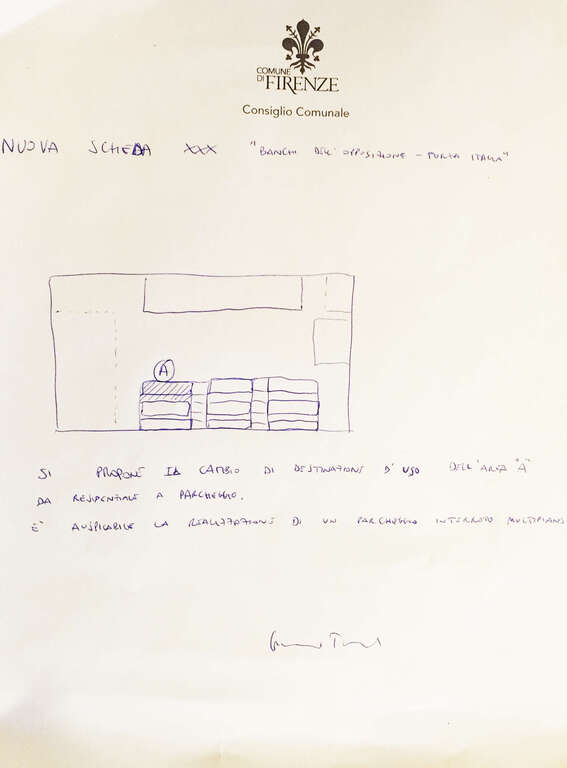 COMUNE
DI FIRENZE
Consiglio Comunale
NUOVA SCHEDA XXX "BANCHI DELL'OPPOSIZIONE - FORZA ITALIA"
A
SI PROPONE IL CAMBIO DI DESTINAZIONE D'USO DELL'AREA "A"
DA RESIDENZIALE A PARCHEGGIO.
È AUSPICABILE LA REALIZZAZIONE DI UN PARCHEGGIO INTERRATO MULTIPIANO